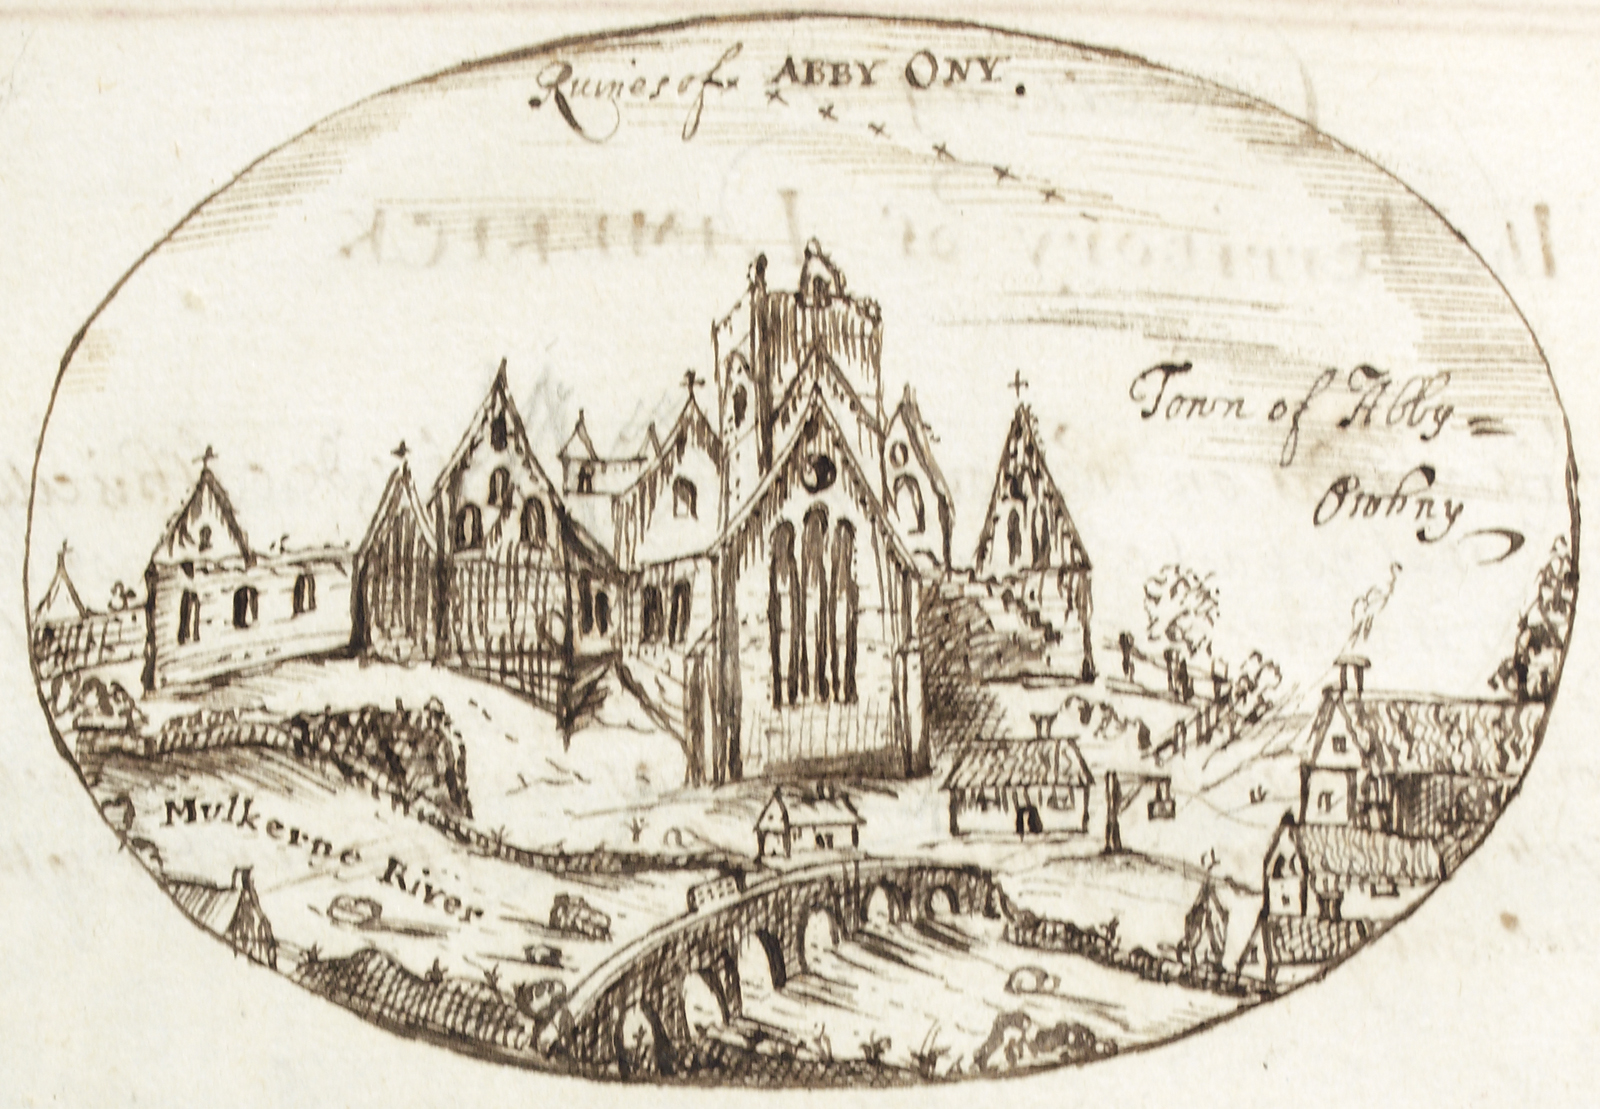 Ruines of ABBY ONY.
Town of Abby=
Owhny
Mulkerne River